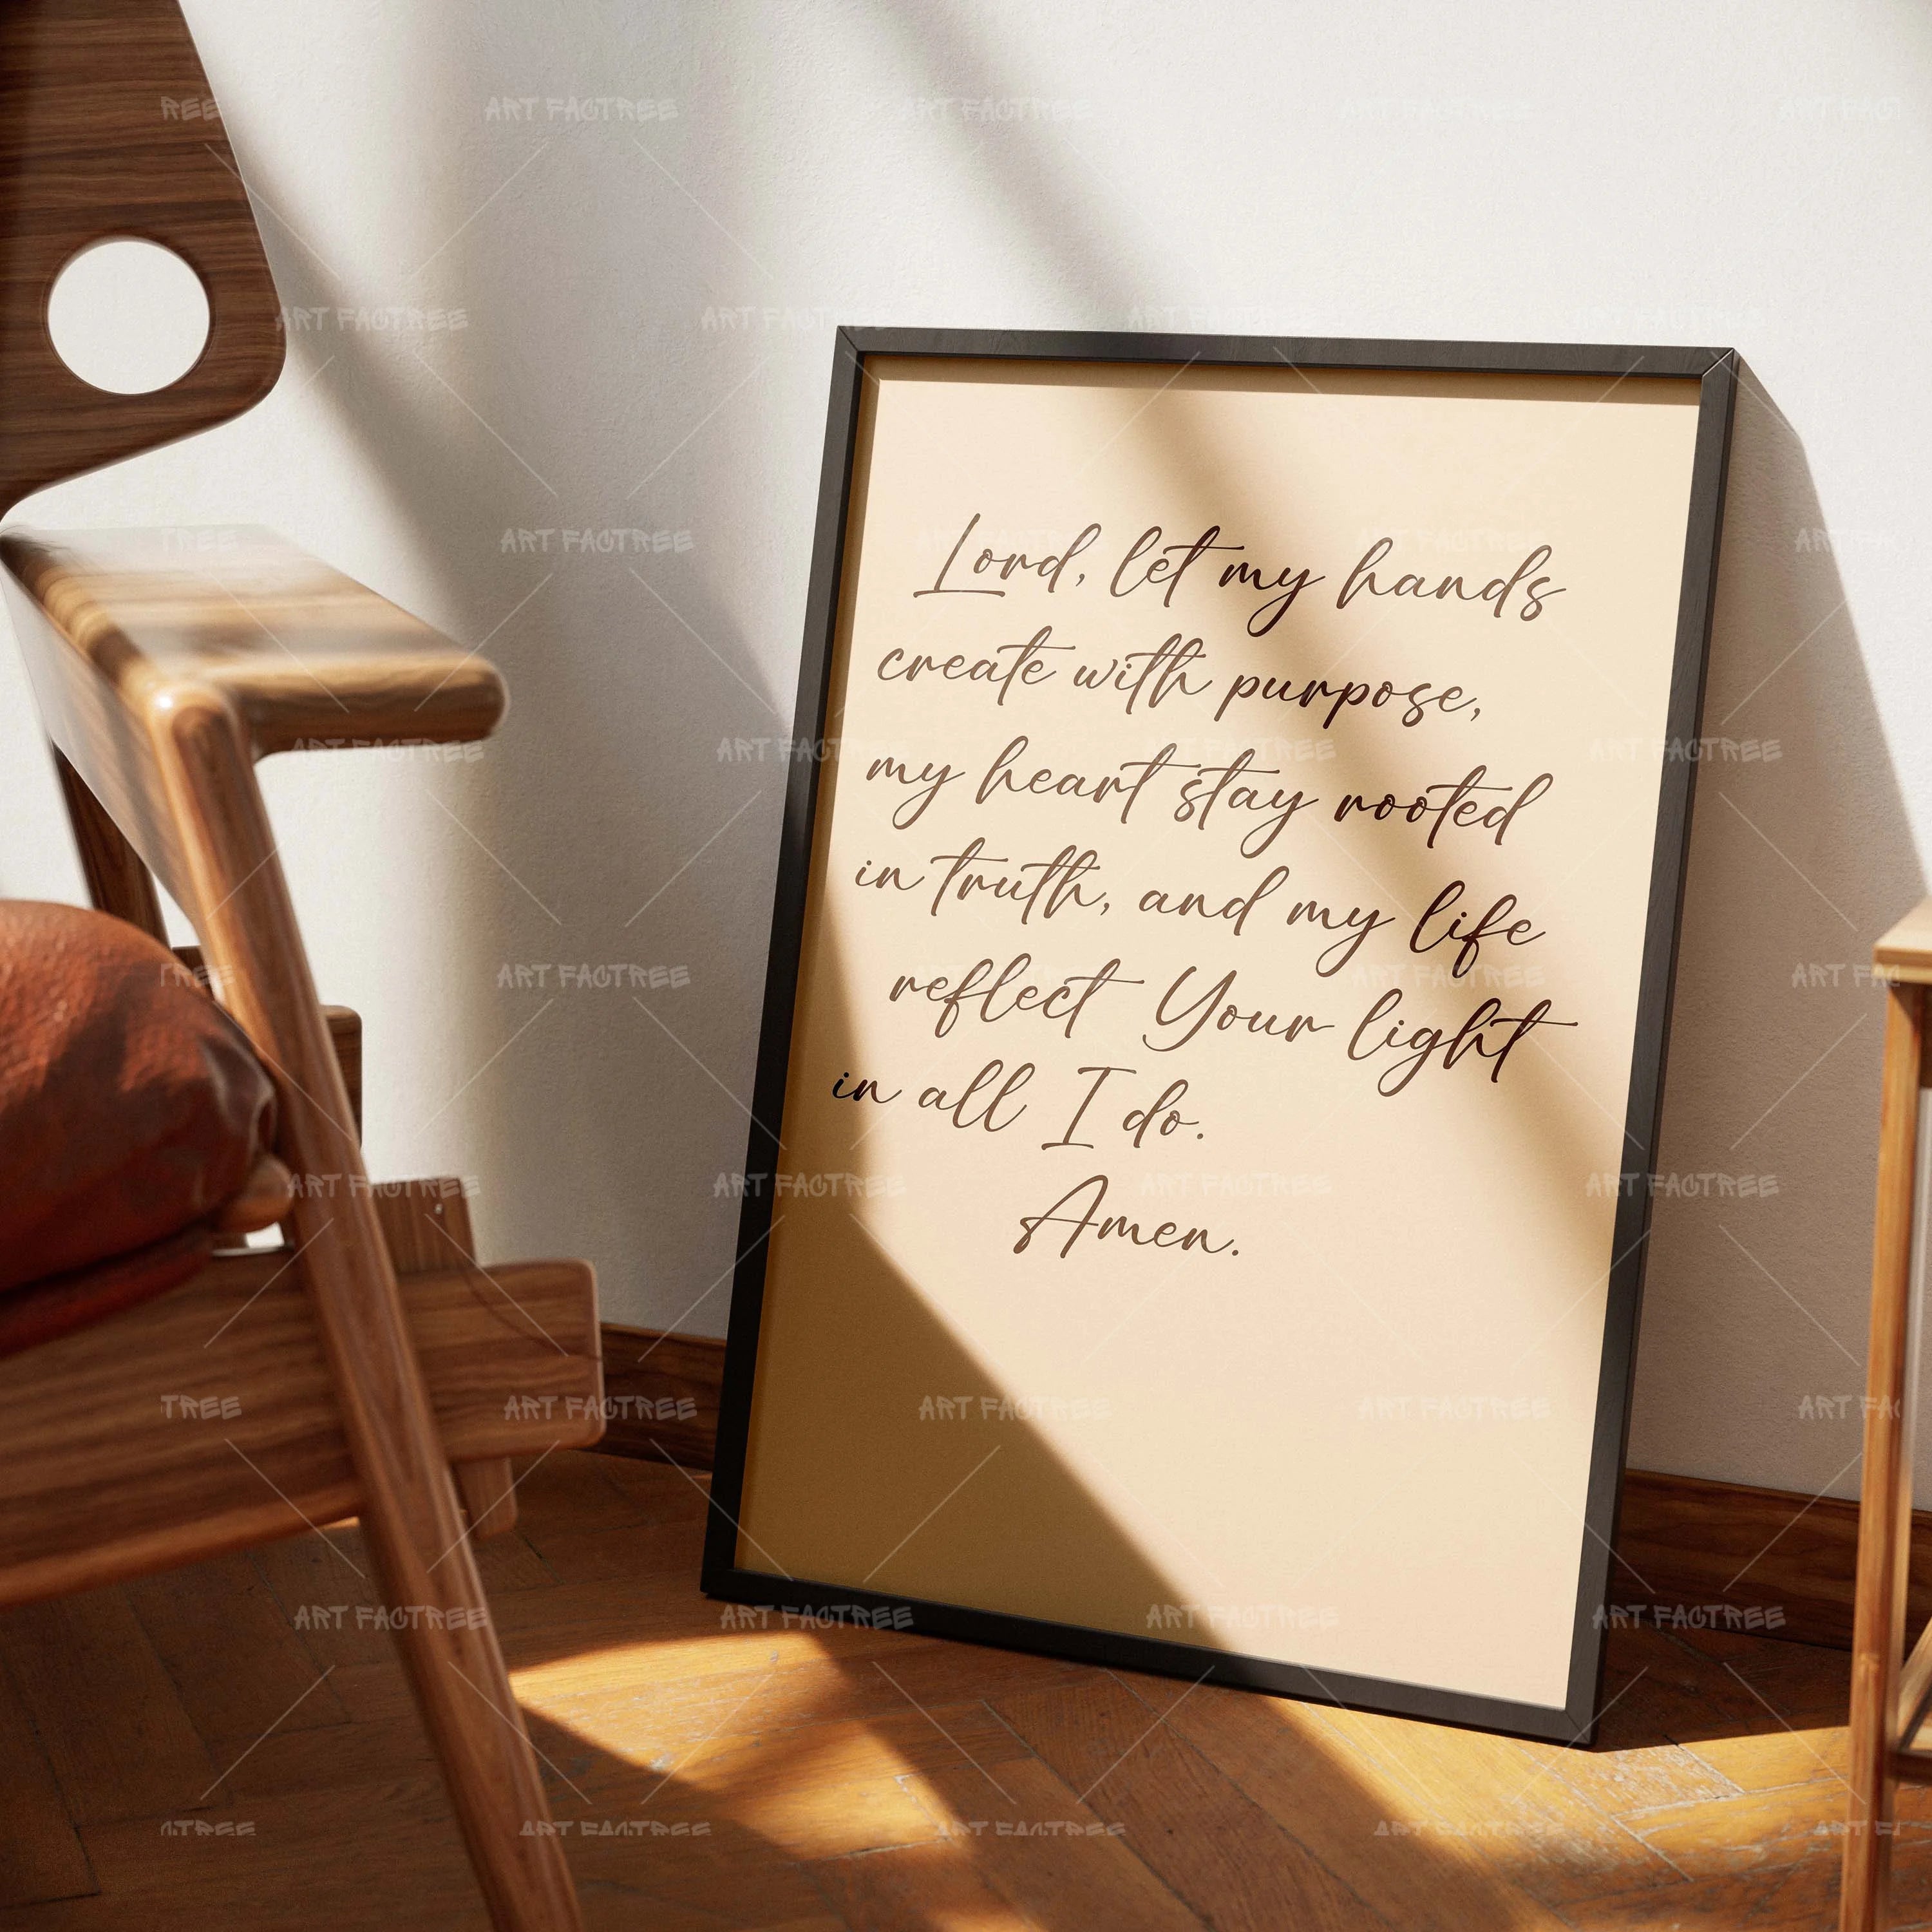 Lord, let my hands
create with purpose,
my heart stay rooted
in truth, and my life
reflect Your light
in all I do.
Amen.
ART FACTREE